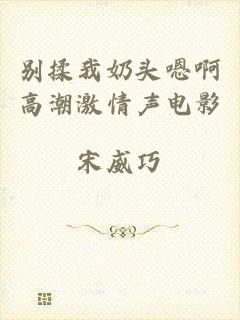 别揉我奶头嗯啊
高潮激情声电影
宋威巧